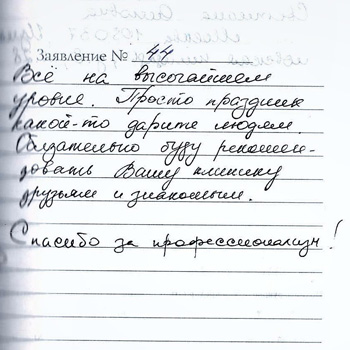 Заявление № 44
Всё на высочайшем
уровне. Просто праздник
какой-то дарите людям.
Обязательно буду рекомен-
довать Вашу клинику
друзьям и знакомым.
Спасибо за профессионализм!